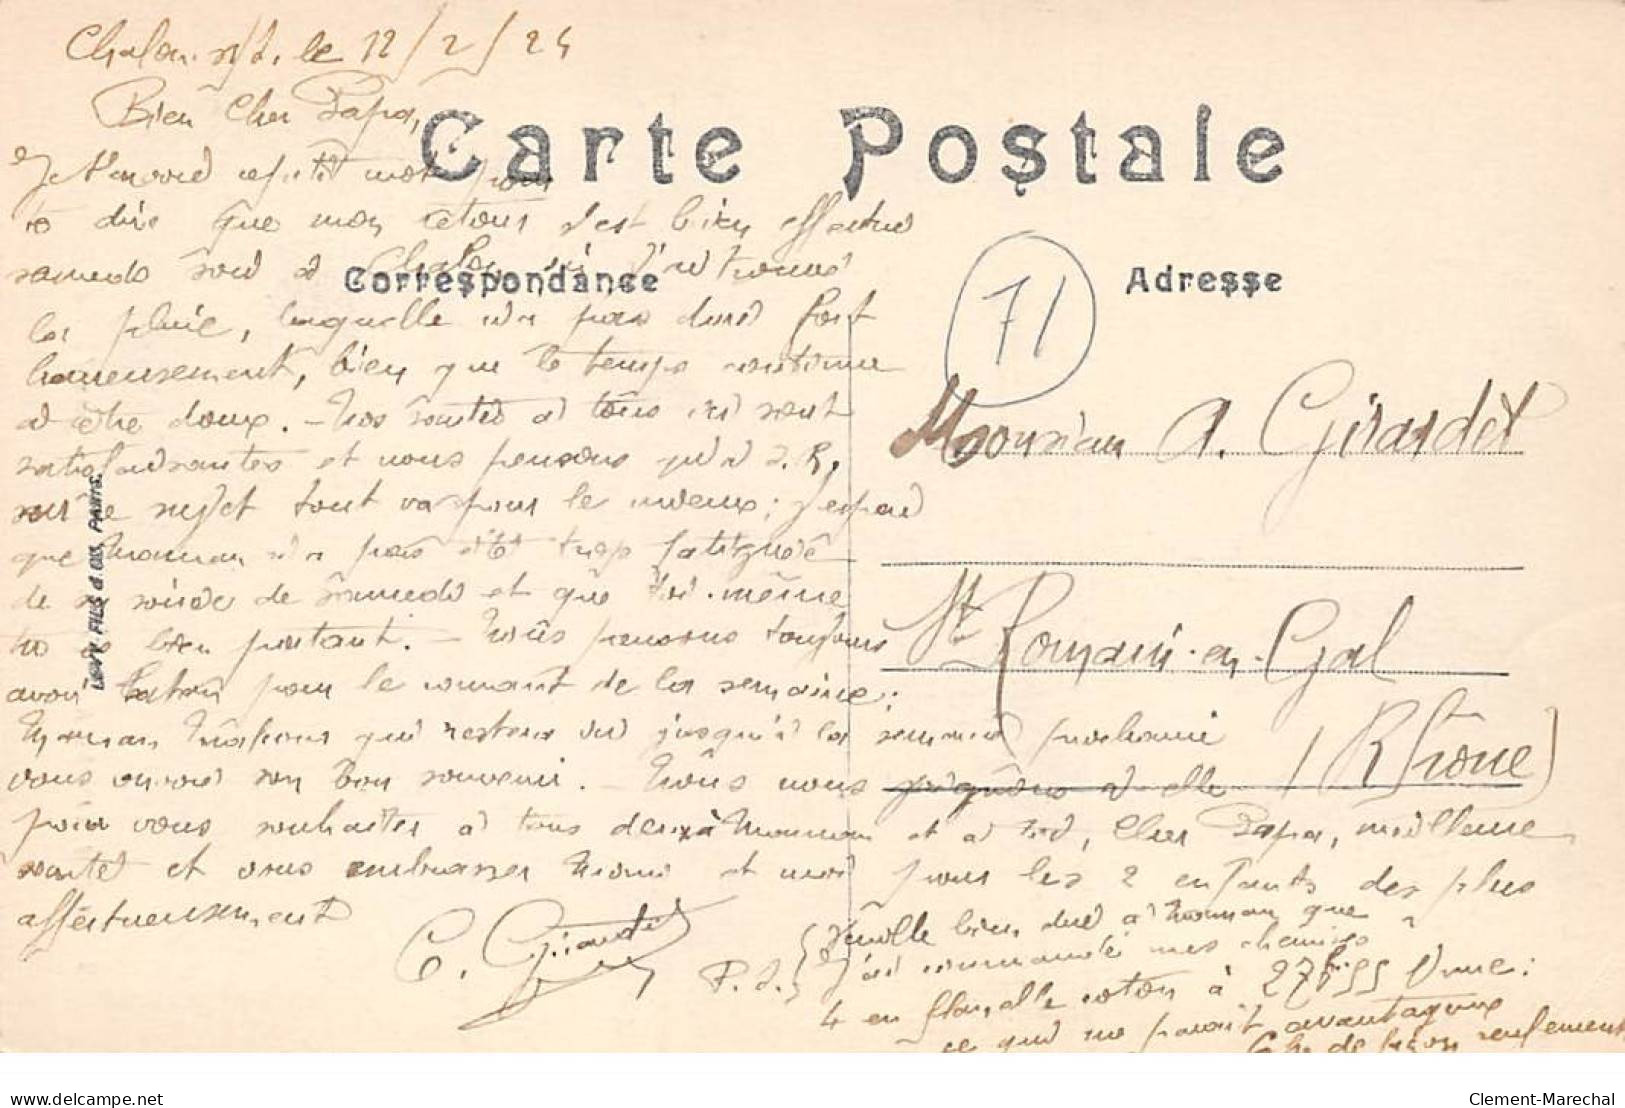 Chalon s/S. le 12/2/24
Bien Cher Papa,
Carte Postale
Je t'envoie petit mot pour
te dire que mon retour s'est bien effectué
samedi soir à Chalon où j'ai trouvé
Correspondance
Adresse
71
la pluie, laquelle n'a pas duré fort
heureusement, bien que le temps continue
à être doux. - Nos santés à tous ici sont
satisfaisantes et nous pensons qu'à S. R.
sur ce sujet tout va pour le mieux; j'espère
que Maman n'a pas été trop fatiguée
de sa soirée de samedi et que toi-même
tu es bien portant. - Nous pensons toujours
avoir pour le courant de la semaine;
Maman qui restera ici jusqu'à la semaine prochaine
vous envoie son bon souvenir. - Nous nous joignons à elle
pour vous souhaiter à tous deux à Maman et à toi, Cher Papa, meilleure
santé et vous embrasser et moi pour les 2 enfants des plus
affectueusement
C. Girardet
P.S. Veuille bien dire à Maman que
j'ai commandé mes chemises
4 en flanelle coton à 27f.55 l'une:
ce qui me paraît avantageux
de façon seulement
Monsieur A. Girardet
St Romain-en-Gal
(Rhône)
LEVY FILS & Cie, PARIS.
delcampe.net
Clement-Marechal